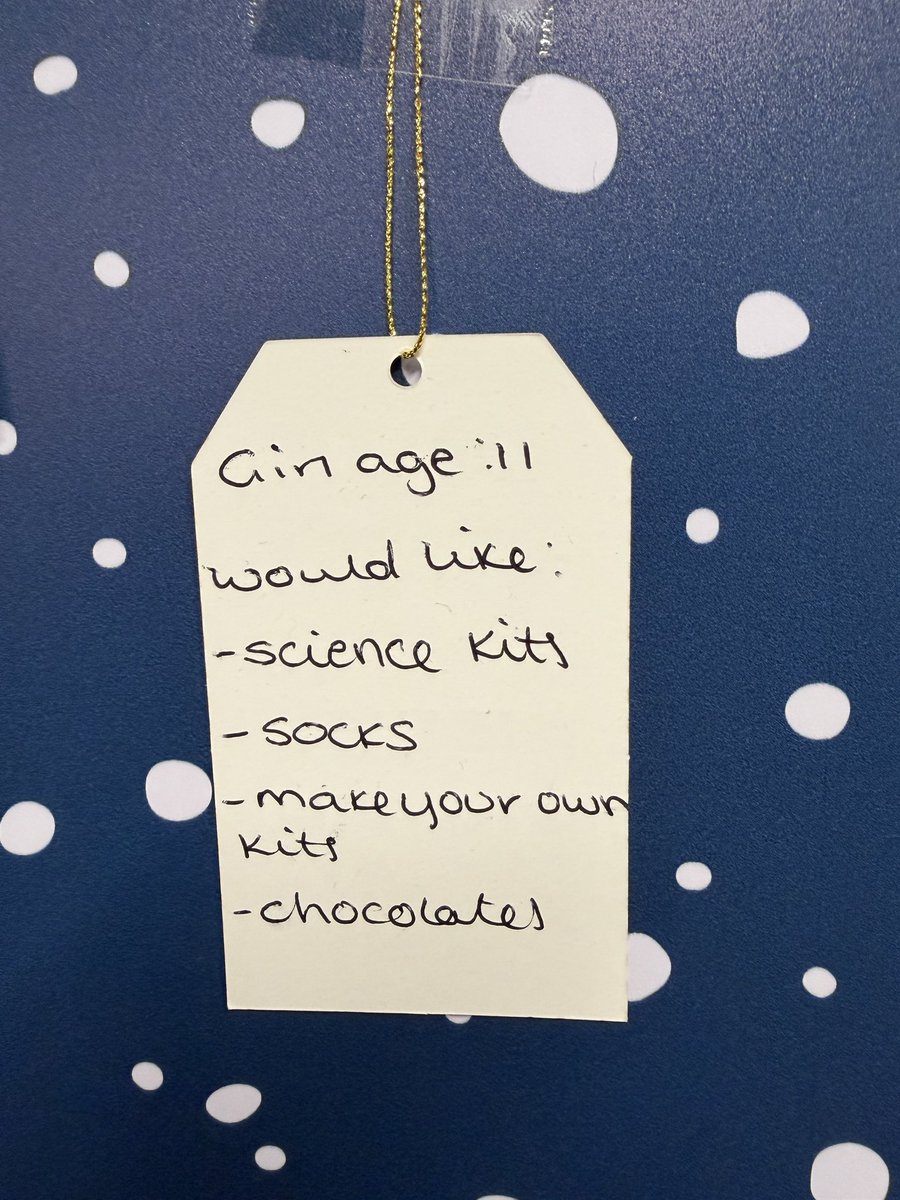 Girl age:11
would like:
-science kits
- socks
- make your own
kits
- chocolates